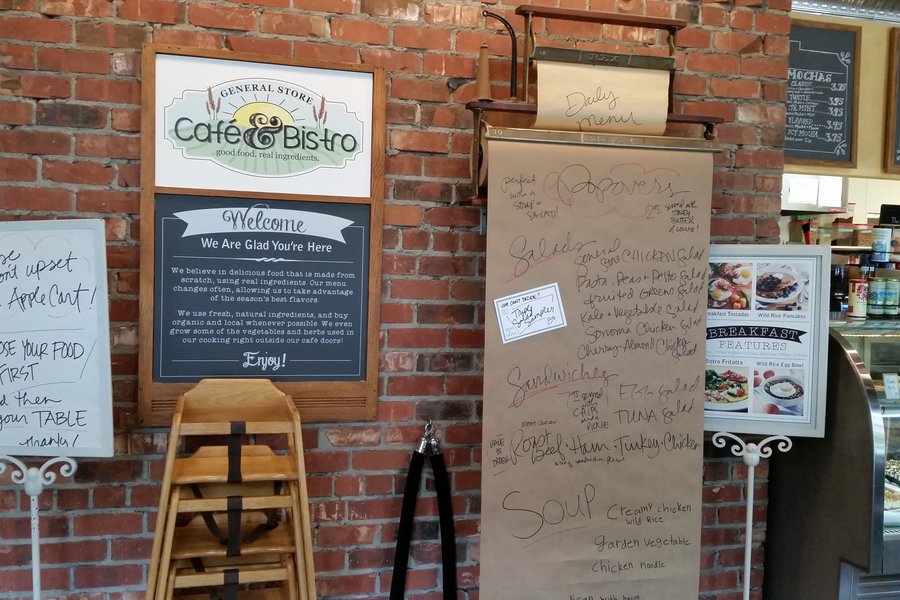 GENERAL STORE
Café & Bistro
good food. real ingredients.
Welcome
We Are Glad You're Here
We believe in delicious food that is made from
scratch, using real ingredients. Our menu
changes often, allowing us to take advantage
of the season's best flavors.
We use fresh, natural ingredients, and buy
organic and local whenever possible. We even
grow some of the vegetables and herbs used in
our cooking right outside our café doors!
Enjoy!
upset
Apple Cart!
YOUR FOOD
FIRST
then
your TABLE
thanks!
Daily
Menu
Popovers
perfect
with a
SOUP or
SALAD!
served with
HONEY
BUTTER
Salads
General
Store CHICKEN Salad
Pasta, Peas & Pesto Salad
Fruited Greens Salad
Kale & Vegetable Salad
Sonoma Chicken Salad
Cherry-Almond Chicken
Salad
CAN'T DECIDE?
Trio
Sampler
Sandwiches
served
with
CHIPS
and a
PICKLE
EGG Salad
TUNA Salad
Roast
Beef • Ham • Turkey • Chicken
SOUP
Creamy chicken
wild Rice
garden vegetable
chicken noodle
MOCHAS
CLASSIC 3.25
TURTLE 3.95
MINT 3.95
FLAVORED 3.95
ICY MOCHA 3.75
Breakfast Tostadas
Wild Rice Pancakes
BREAKFAST
FEATURES
Bistro Frittata
Wild Rice Egg Bowl